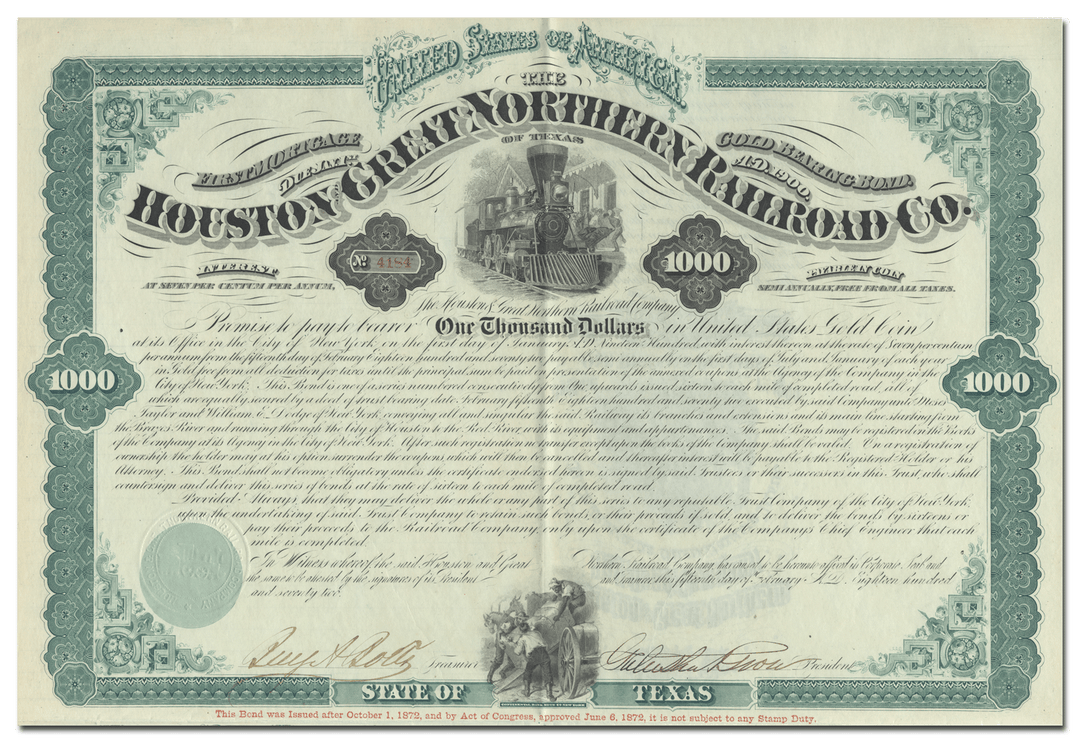 UNITED STATES OF AMERICA.
THE
HOUSTON AND GREAT NORTHERN RAILROAD CO.
OF TEXAS
FIRST MORTGAGE GOLD BEARING BOND.
DUE JANY. 1ST A.D. 1900.
No 4184 1000
INTEREST PAYABLE IN COIN
AT SEVEN PER CENTUM PER ANNUM, SEMI ANNUALLY, FREE FROM ALL TAXES.
The Houston & Great Northern Railroad Company
Promise to pay to bearer One Thousand Dollars in United States Gold Coin
at its Office in the City of New York, on the first day of January A.D. Nineteen Hundred, with interest thereon at the rate of Seven per centum
per annum from the fifteenth day of February Eighteen hundred and seventy two payable semi annually on the first days of July and January of each year
in Gold free from all deduction for taxes until the principal sum be paid on presentation of the annexed coupons at the Agency of the Company in the
1000 City of New York. This Bond is one of a series numbered consecutively from One upwards issued sixteen on each mile of completed road. All of 1000
which are equally secured by a Deed of trust bearing date, February fifteenth Eighteen hundred and seventy two executed by said Company unto Moses
Taylor and William E. Dodge of New York, conveying all and singular its Road, Railway its branches and extensions and its main line starting from
the Brazos River and running through the City of Houston to the Red River, with its equipment and appurtenances. The said Bonds may be registered on the Books
of the Company at its Agency in the City of New York. After such registration no transfer except upon the books of the Company shall be valid. On a registration of
ownership the holder may at his option surrender the coupons, which will then be cancelled, and thereafter interest will be payable to the Registered Holder or his
Attorney. This Bond shall not become obligatory unless the certificate endorsed hereon is signed by said Trustees or their successors in this Trust, who shall
countersign and deliver this series of bonds at the rate of sixteen to each mile of completed road.
Provided Always, that they may deliver the whole or any part of this series to any reputable Trust Company of the City of New York,
upon the undertaking of said Trust Company to retain said bonds, or their proceeds if sold, and to deliver the bonds by sixteens or
pay their proceeds to the Railroad Company only upon the certificate of the Company's Chief Engineer that each
mile is completed.
In Witness whereof the said Houston and Great Northern Railroad Company has caused to be hereunto affixed its Corporate Seal and
the same to be attested by the signatures of its President and Treasurer this fifteenth day of February A.D. Eighteen hundred
and seventy two.
Treasurer President
STATE OF TEXAS
This Bond was Issued after October 1, 1872, and by Act of Congress, approved June 6, 1872, it is not subject to any Stamp Duty.